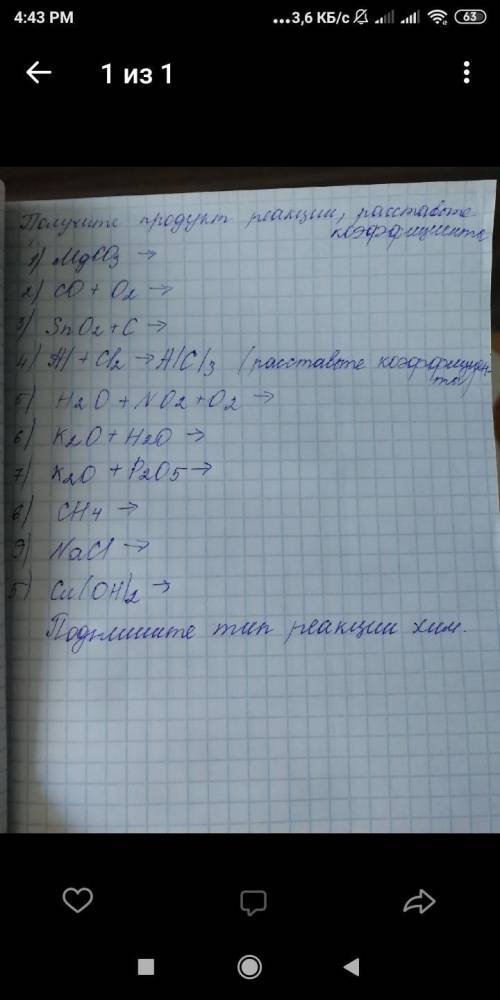 4:43 PM ...3,6 КБ/с 63
1 из 1
Получите продукт реакции, расставте
коэффициенты
1) MgCO3 →
2) CO + O2 →
3) SnO2 + C →
4) Al + Cl2 → AlCl3 (расставьте коэффициен-
ты)
5) H2O + NO2 + O2 →
6) K2O + H2O →
7) K2O + P2O5 →
8) CH4 →
9) NaCl →
5) Cu(OH)2 →
Подпишите тип реакции хим.